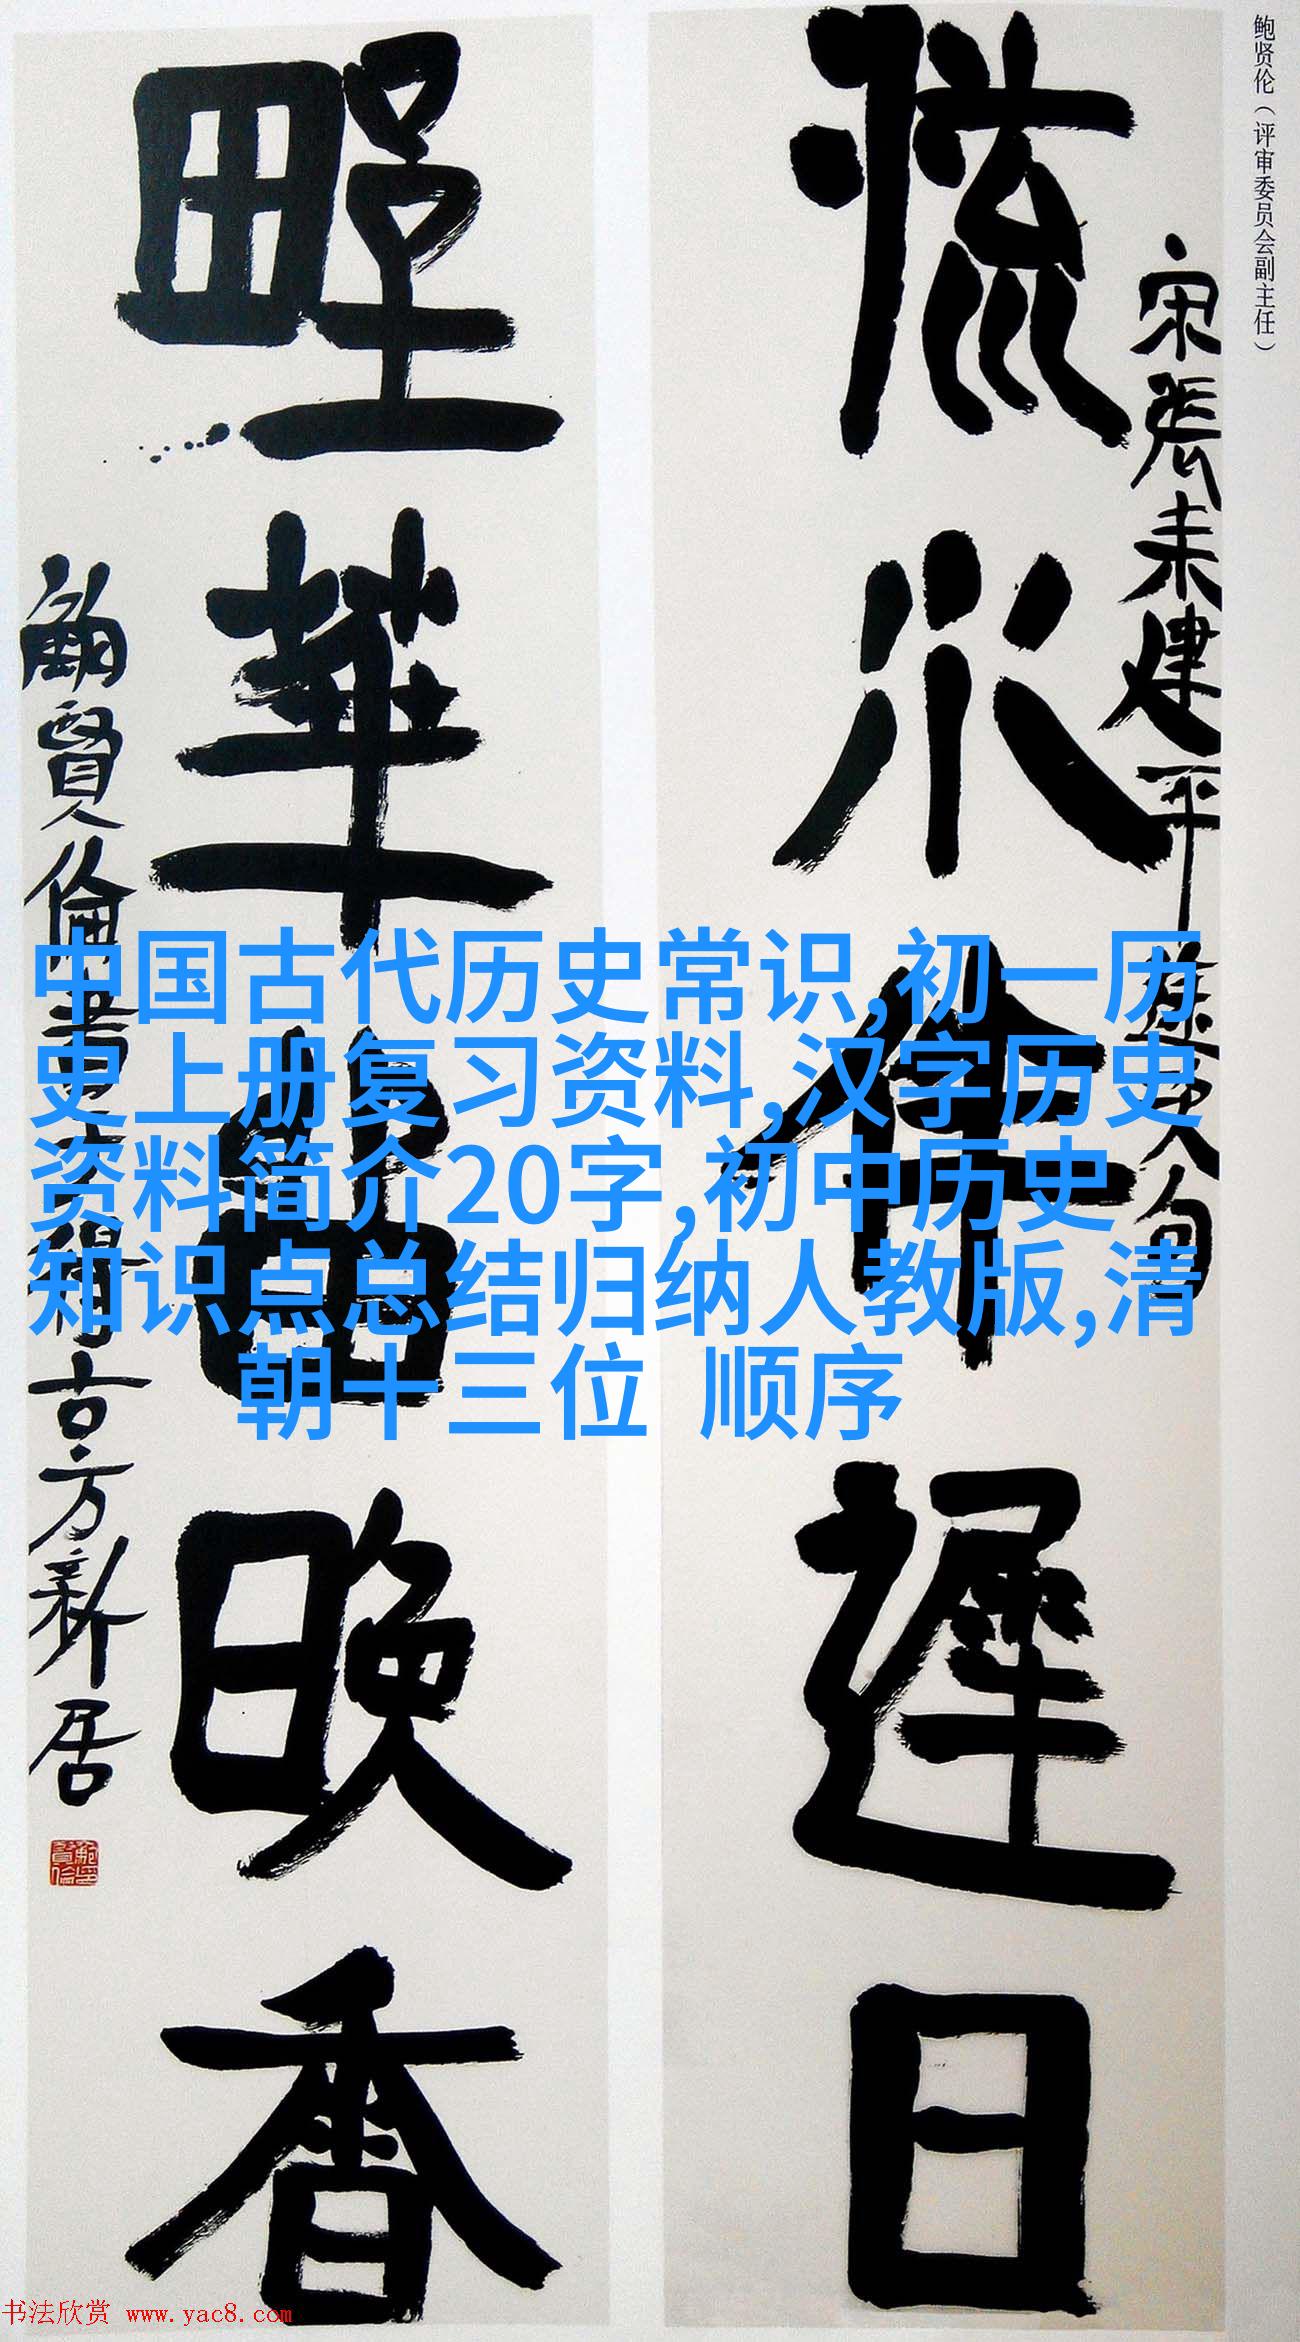 鲍贤伦（评审委员会副主任）
宋張耒建平
流水
遲日
野華
晚香
鮑賢倫書
得古方新居
中国古代历史常识,初一历
史上册复习资料,汉字历史
资料简介20字,初中历史
知识点总结归纳人教版,清
朝十三位 顺序
书法欣赏 www.yac8.com